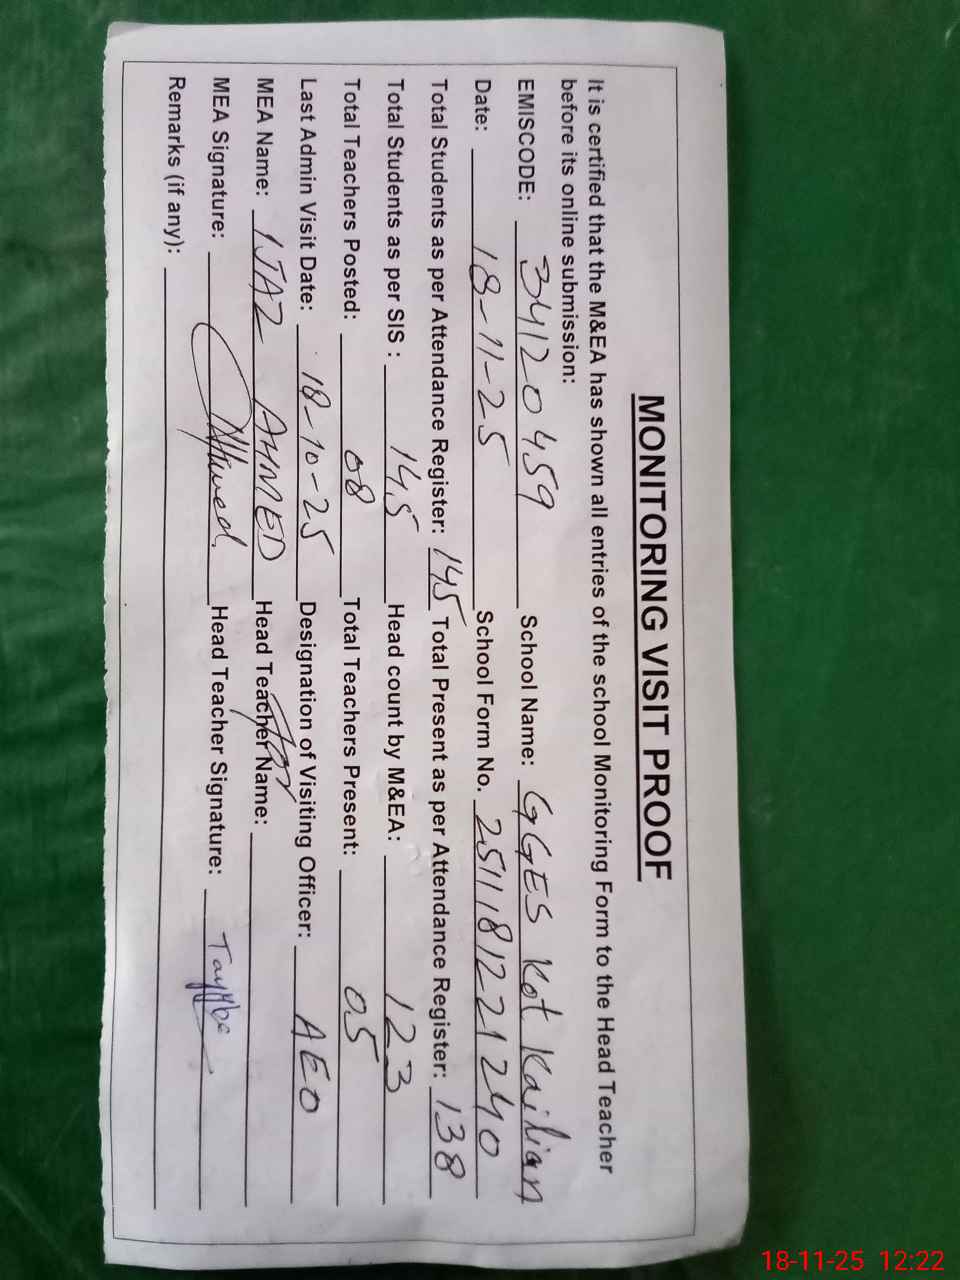 MONITORING VISIT PROOF
It is certified that the M&EA has shown all entries of the school Monitoring Form to the Head Teacher
before its online submission:
EMISCODE: 34120459 School Name: GGES Kot Kailian
Date: 18-11-25 School Form No. 2511812221240
Total Students as per Attendance Register: 145 Total Present as per Attendance Register: 138
Total Students as per SIS : 145 Head count by M&EA: 123
Total Teachers Posted: 08 Total Teachers Present: 05
Last Admin Visit Date: 18-10-25 Designation of Visiting Officer: AEO
MEA Name: IJAZ AHMED Head Teacher Name:
MEA Signature: Ahmed Head Teacher Signature: Tayyba
Remarks (if any):
18-11-25 12:22